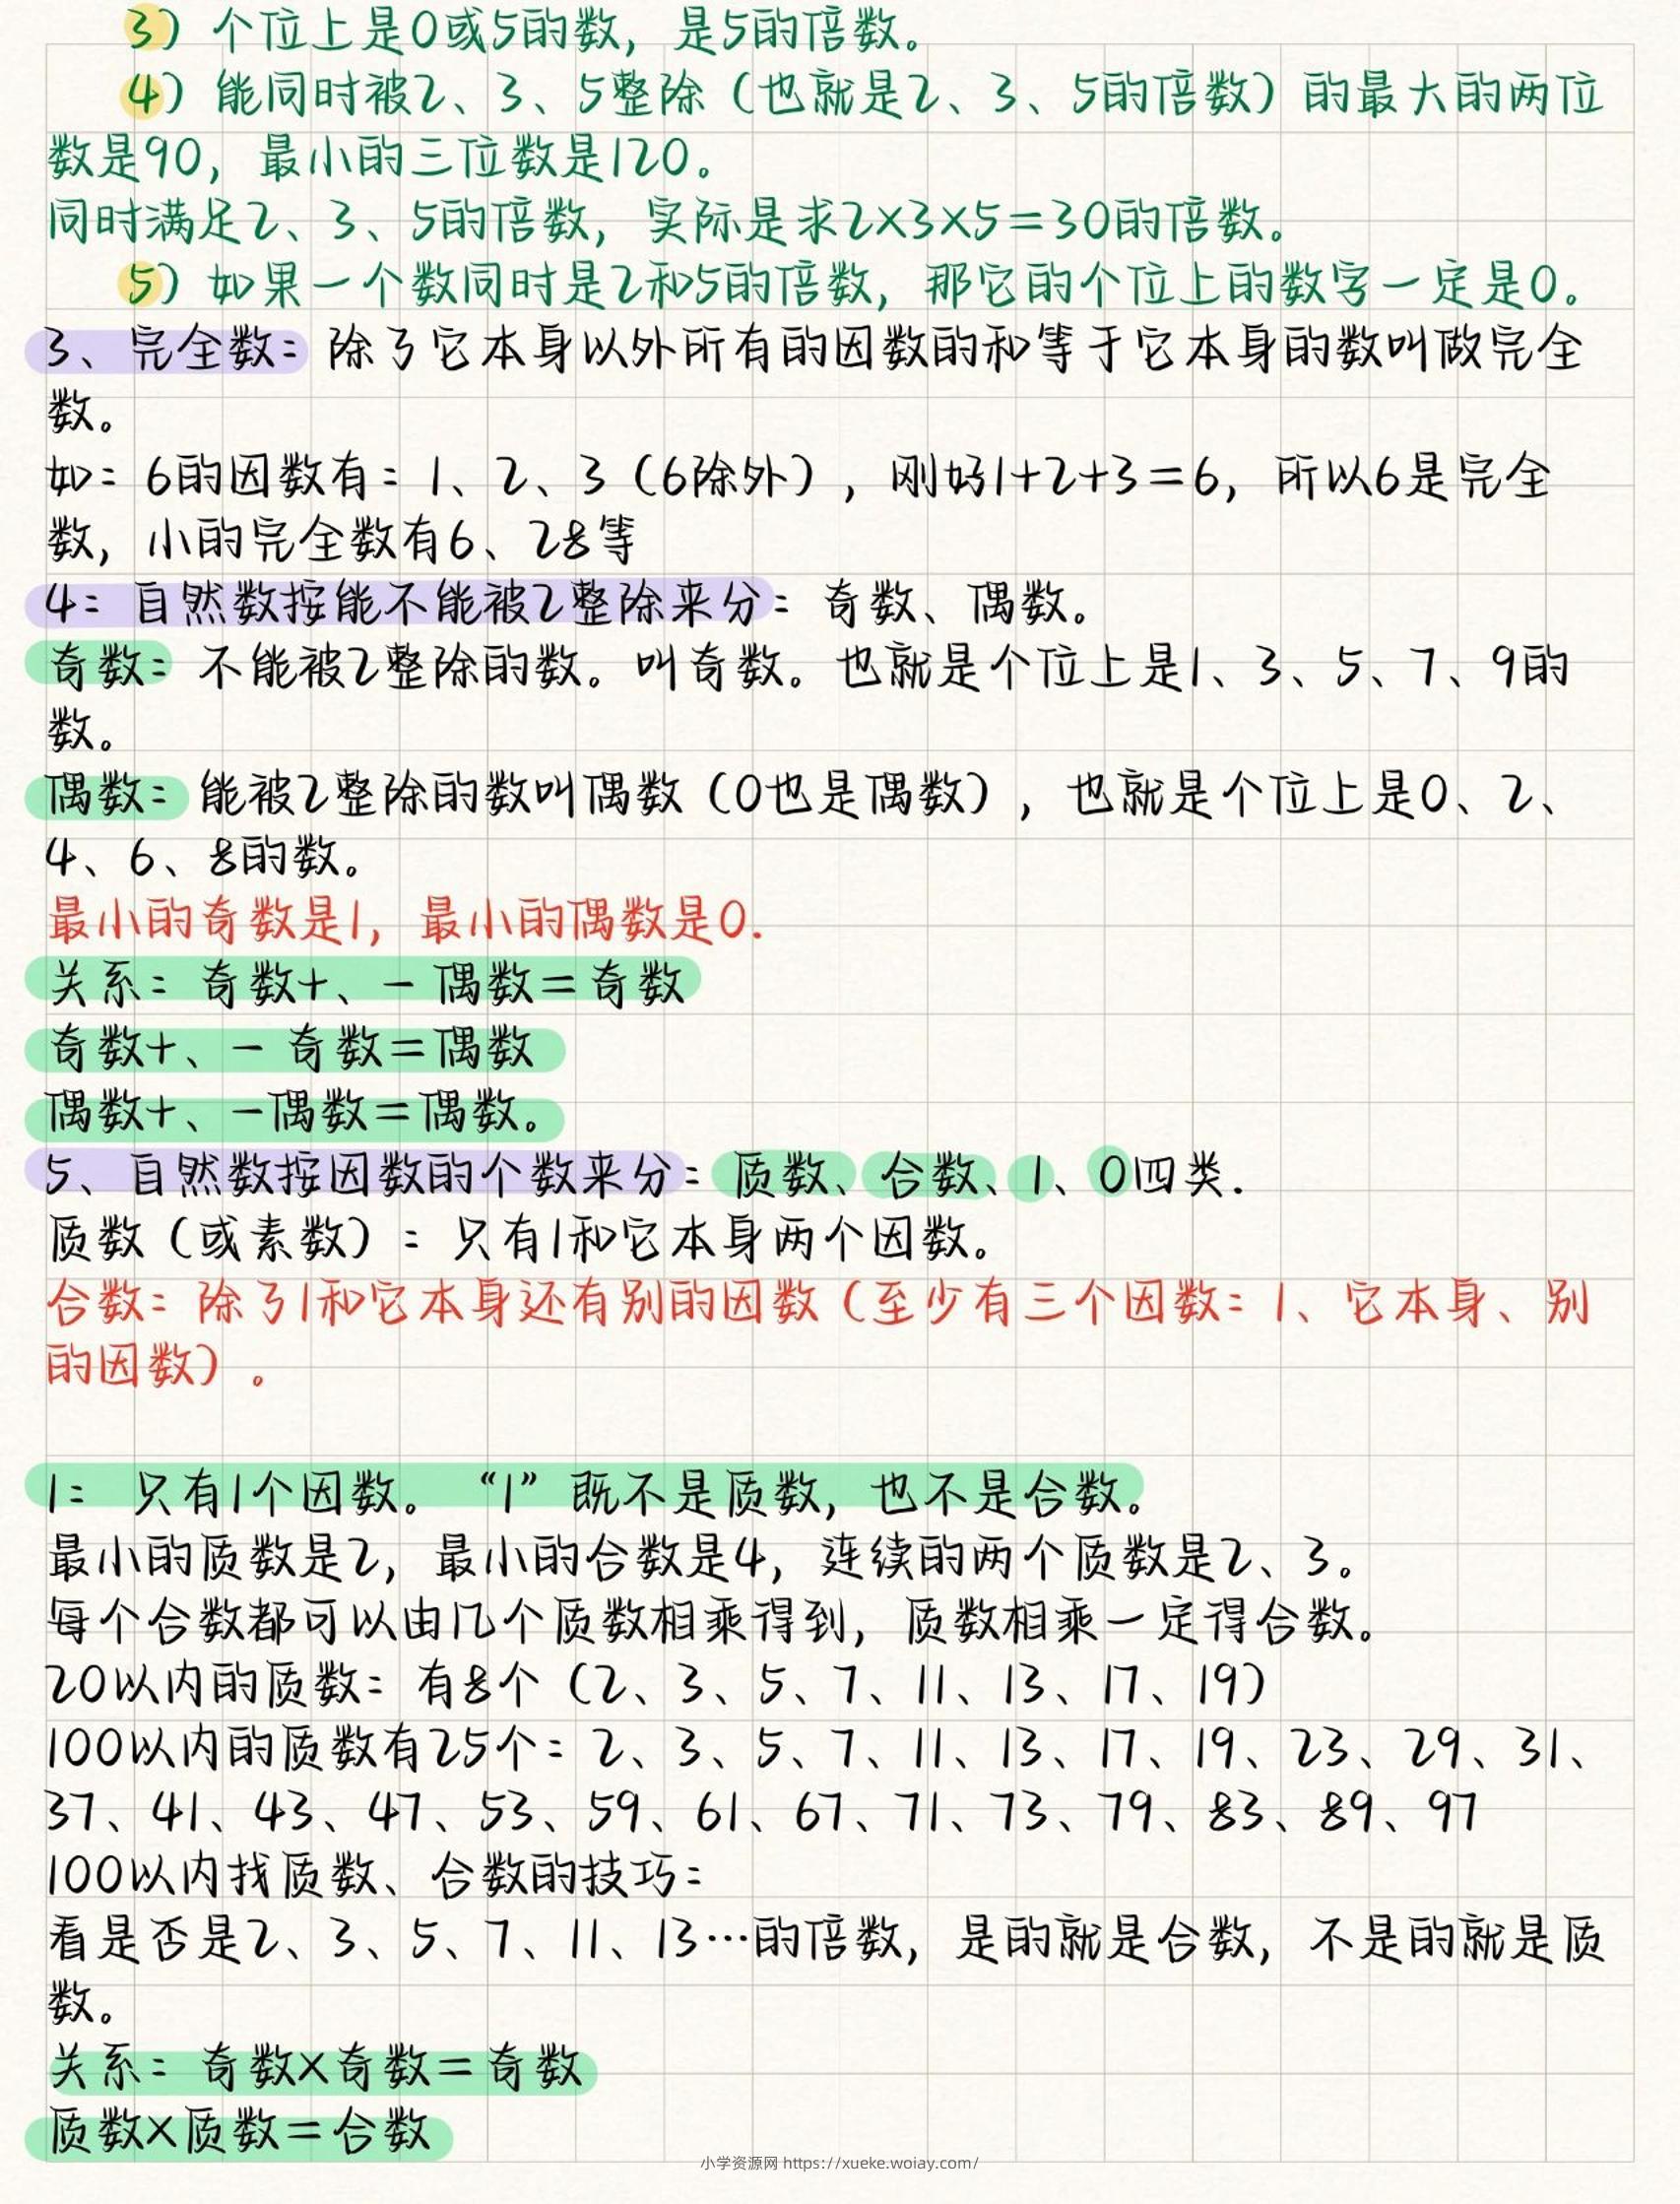 3）个位上是0或5的数，是5的倍数。
4）能同时被2、3、5整除（也就是2、3、5的倍数）的最大的两位
数是90，最小的三位数是120。
同时满足2、3、5的倍数，实际是求2×3×5=30的倍数。
5）如果一个数同时是2和5的倍数，那它的个位上的数字一定是0。
3、完全数：除了它本身以外所有的因数的和等于它本身的数叫做完全
数。
如：6的因数有：1、2、3（6除外），刚好1+2+3=6，所以6是完全
数，小的完全数有6、28等
4：自然数按能不能被2整除来分：奇数、偶数。
奇数：不能被2整除的数。叫奇数。也就是个位上是1、3、5、7、9的
数。
偶数：能被2整除的数叫偶数（0也是偶数），也就是个位上是0、2、
4、6、8的数。
最小的奇数是1，最小的偶数是0.
关系：奇数+、-偶数=奇数
奇数+、-奇数=偶数
偶数+、-偶数=偶数。
5、自然数按因数的个数来分：质数、合数、1、0四类.
质数（或素数）：只有1和它本身两个因数。
合数：除了1和它本身还有别的因数（至少有三个因数：1、它本身、别
的因数）。
1：只有1个因数。“1”既不是质数，也不是合数。
最小的质数是2，最小的合数是4，连续的两个质数是2、3。
每个合数都可以由几个质数相乘得到，质数相乘一定得合数。
20以内的质数：有8个（2、3、5、7、11、13、17、19）
100以内的质数有25个：2、3、5、7、11、13、17、19、23、29、31、
37、41、43、47、53、59、61、67、71、73、79、83、89、97
100以内找质数、合数的技巧：
看是否是2、3、5、7、11、13…的倍数，是的就是合数，不是的就是质
数。
关系：奇数×奇数=奇数
质数×质数=合数
小学资源网 https://xueke.woiay.com/